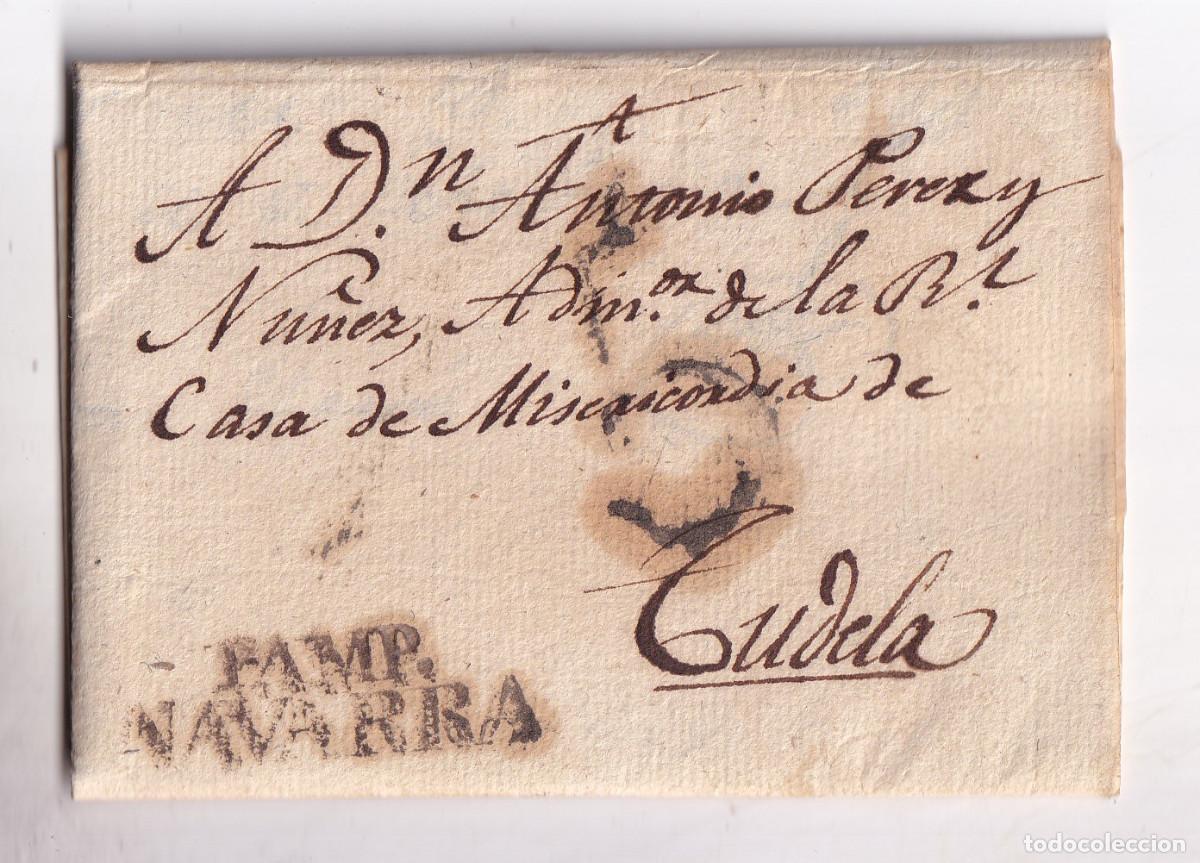 A D.n Antonio Perez y
Nuñez, Adm.or de la R.l
Casa de Misericordia de
Tudela
PAMP.
NAVARRA
todocoleccion